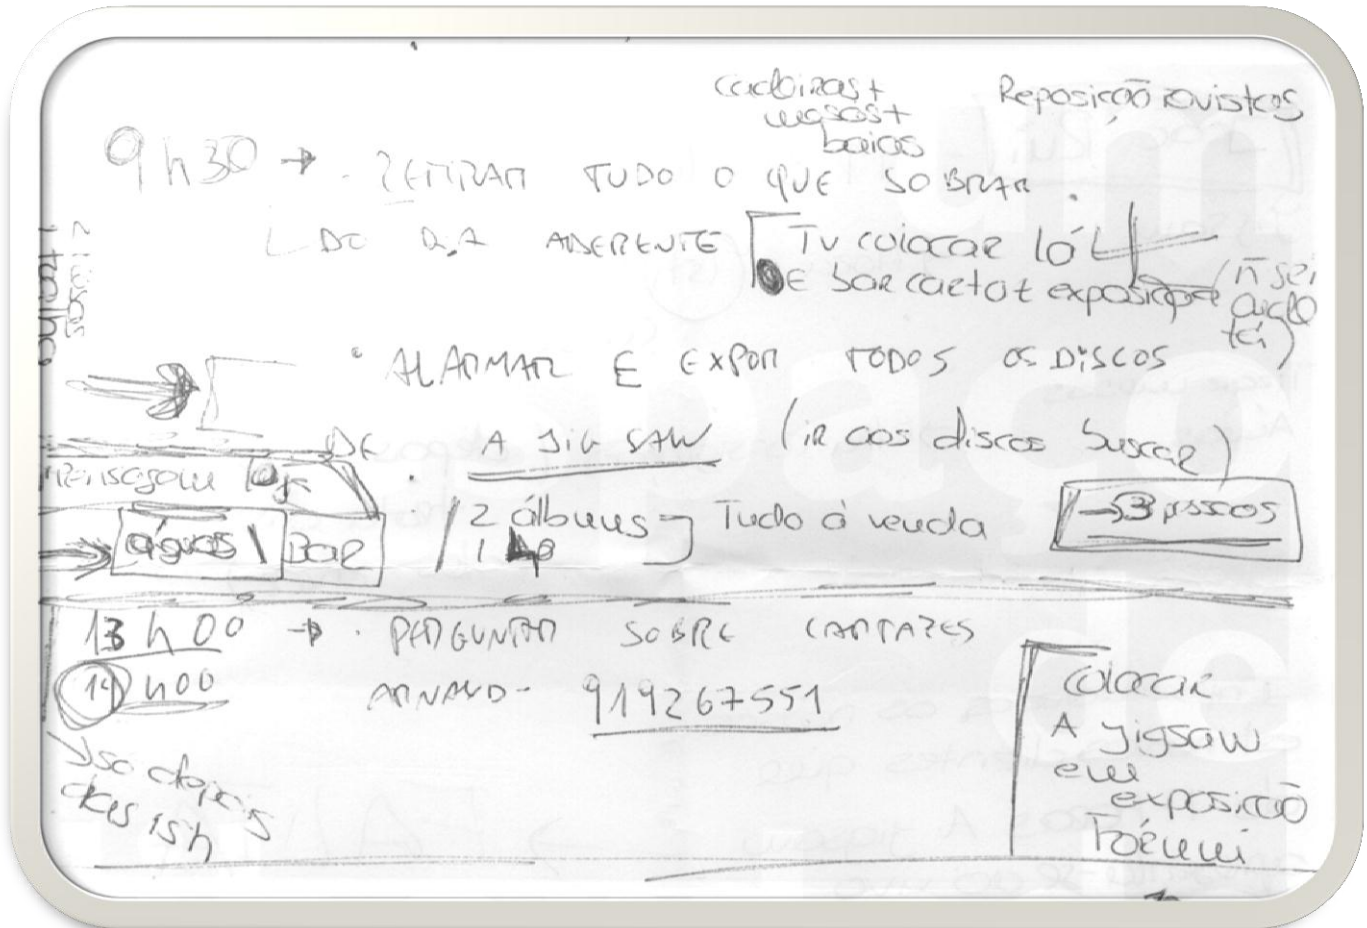 cadeiras +
mesas +
baias
Reposição revistas
9h30 → . RETIRAR TUDO O QUE SOBRAR
DO DIA ADERENTE
TV colocar lá
E bar exposição
(ñ sei
• ALARMAR E EXPOR TODOS OS DISCOS
DE A JIGSAW (ir aos discos buscar)
mensagem loja
→ águas \ Bar
/ 2 álbuns
1
Tudo à venda
→ 3 pssoas
13h00 → . PERGUNTAR SOBRE CARTAZES
14h00 ARNALD - 919267551
→ só depois
das 15h
Colocar
A Jigsaw
em
exposição